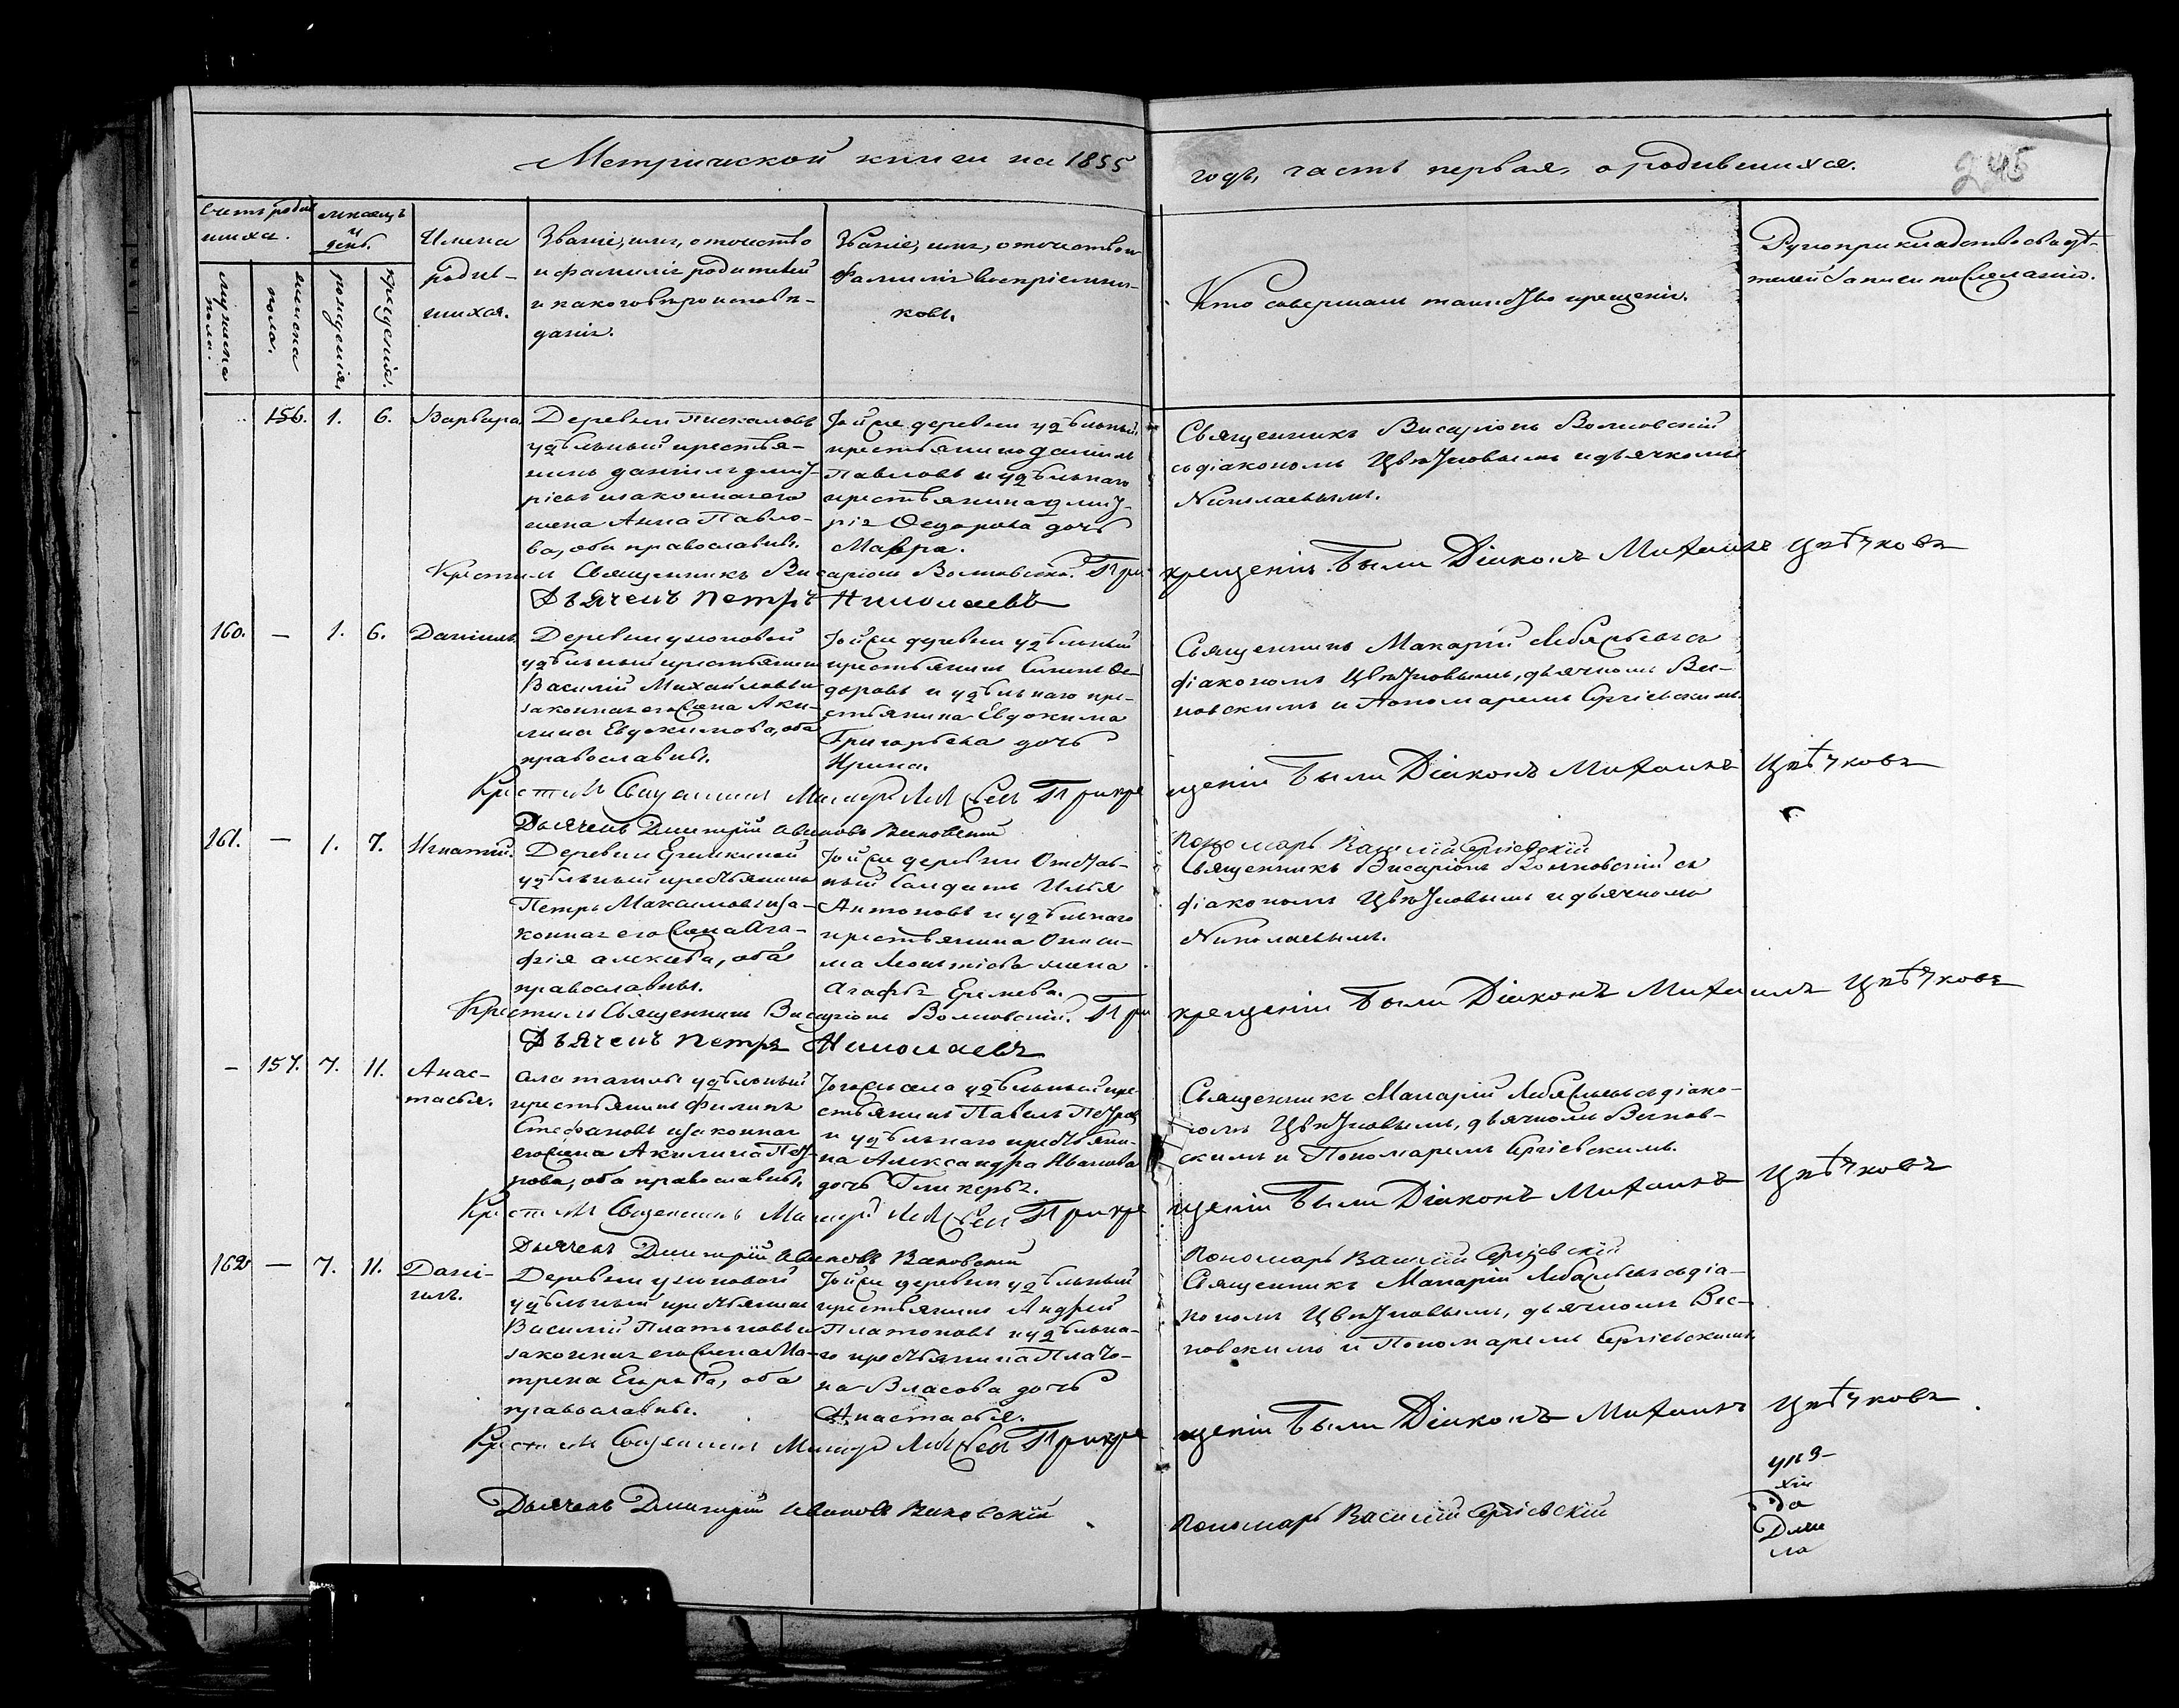 Метрической книги на 1855
годъ, часть первая, о родившихся.
245
Счетъ родив
шихся.
мужеска
пола.
женска
пола.
месяцъ
и
день.
рожденія.
крещенія.
Имена
родив-
шихся.
Званіе, имя, отчество
и фамилія родителей
и какого вѣроисповѣ-
данія.
Званіе, имя, отчество и
фамилія воспріемни-
ковъ.
Кто совершалъ таинство крещенія.
Рукоприкладство свидѣ-
телей записи по желанію.
156. 1. 6. Варвара
Деревни Пискаловъ
удѣльный крестья-
нинъ Даніилъ Дмит-
ріевъ и законная его
жена Анна Павло-
ва, оба православные.
Той же деревни удѣльный
крестьянинъ Даніилъ
Павловъ и удѣльнаго
крестьянина Дмит-
рія Федорова дочь
Мавра.
Священникъ Висаріонъ Волковскій
съ діакономъ Цвѣтковымъ и дьячкомъ
Николаевымъ.
Крестилъ Священникъ Висаріонъ Волковскій. При
крещеніи были Діаконъ Михаилъ Цвѣтковъ
Дьячекъ Петръ Николаевъ
160. — 1. 6. Даніилъ
Деревни
удѣльный крестьянинъ
Василій Михайловъ и
законная его жена Аки-
лина Евдокимова, оба
православные.
Той же деревни удѣльный
крестьянинъ Ѳе-
доровъ и удѣльнаго кре-
стьянина Евдокима
Григорьева дочь
Ирина.
Священникъ Макарій съ
діакономъ Цвѣтковымъ, дьячкомъ
новскимъ и Пономаремъ Сергіевскимъ.
Крестилъ Священникъ Макарій При кре
щеніи были Діаконъ Михаилъ Цвѣтковъ
Дьячекъ Дмитрій Ивановъ
Пономарь Василій Сергіевскій
161. — 1. 7. Игнатій.
Деревни Еремкиной
удѣльный крестьянинъ
Петръ Максимовъ и за-
конная его жена Ага-
фія Алексѣева, оба
православные.
Той же деревни Отстав-
ный Солдатъ Илья
Антоновъ и удѣльнаго
крестьянина Ониси-
ма Леонтіева жена
Агафья Еремѣева.
Священникъ Висаріонъ Волковскій съ
діакономъ Цвѣтковымъ и дьячкомъ
Николаевымъ.
Крестилъ Священникъ Висаріонъ Волковскій. При
крещеніи были Діаконъ Михаилъ Цвѣтковъ
Дьячекъ Петръ Николаевъ
— 157. 7. 11. Анас-
тасья.
удѣльный
крестьянинъ Филипъ
Стефановъ и законная
его жена Акилина Пет-
рова, оба православные.
Того же села удѣльный кре-
стьянинъ Павелъ Петровъ
и удѣльнаго крестьяни-
на Александра Иванова
дочь Гликерья.
Священникъ Макарій съ діако-
номъ Цвѣтковымъ, дьячкомъ
скимъ и Пономаремъ Сергіевскимъ.
Крестилъ Священникъ Макарій При кре
щеніи были Діаконъ Михаилъ Цвѣтковъ
Дьячекъ Дмитрій Ивановъ
Пономарь Василій Сергіевскій
162 — 7. 11. Дані-
илъ.
Деревни
удѣльный крестьянинъ
Василій Платоновъ и
законная его жена Ма-
трена Егорова, оба
православные.
Той же деревни удѣльный
крестьянинъ Андрей
Платоновъ и удѣльна-
го крестьянина Плато-
на Власова дочь
Анастасья.
Священникъ Макарій съ діа-
кономъ Цвѣтковымъ, дьячкомъ
новскимъ и Пономаремъ Сергіевскимъ.
Крестилъ Священникъ Макарій При кре
щеніи были Діаконъ Михаилъ Цвѣтковъ
Дьячекъ Дмитрій Ивановъ
Пономарь Василій Сергіевскій